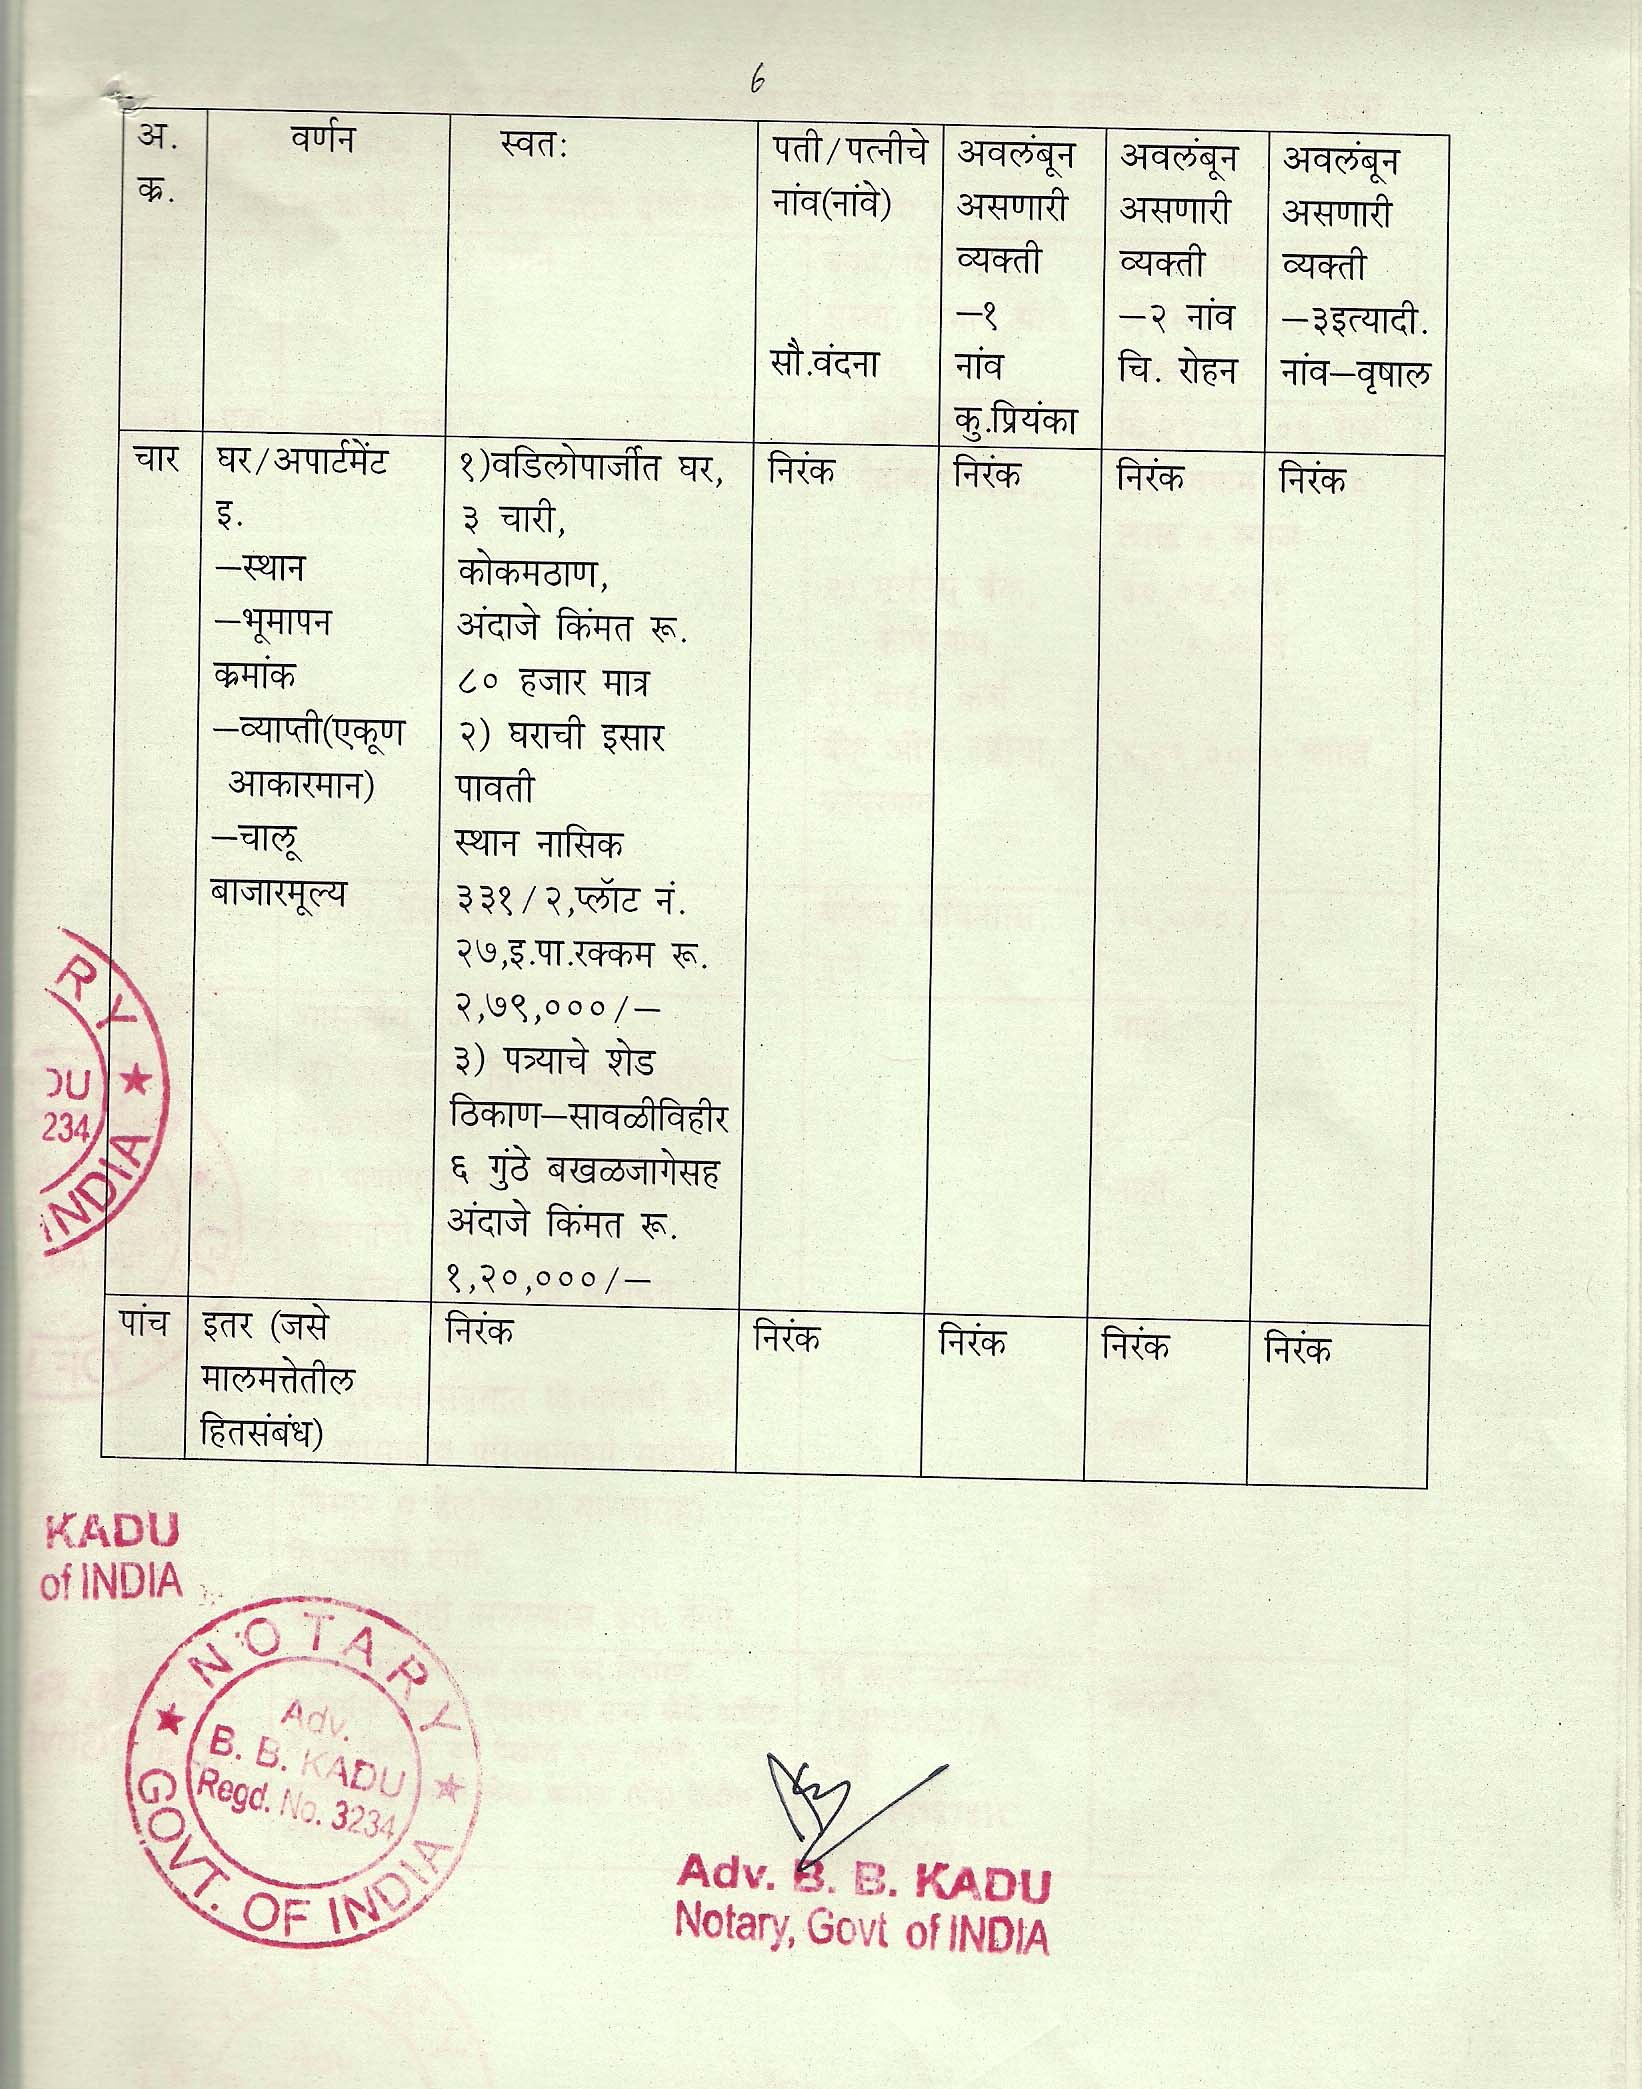 6
अ. क्र.
वर्णन
स्वतः
पती/पत्नीचे
नांव(नांवे)
सौ.वंदना
अवलंबून
असणारी
व्यक्ती
–१
नांव
कु.प्रियंका
अवलंबून
असणारी
व्यक्ती
–२ नांव
चि. रोहन
अवलंबून
असणारी
व्यक्ती
–३इत्यादी.
नांव–वृषाल
चार
घर/अपार्टमेंट
इ.
–स्थान
–भूमापन
क्रमांक
–व्याप्ती(एकूण
आकारमान)
–चालू
बाजारमूल्य
१)वडिलोपार्जीत घर,
३ चारी,
कोकमठाण,
अंदाजे किंमत रू.
८० हजार मात्र
२) घराची इसार
पावती
स्थान नासिक
३३१/२,प्लॉट नं.
२७,इ.पा.रक्कम रू.
२,७९,०००/–
३) पत्र्याचे शेड
ठिकाण–सावळीविहीर
६ गुंठे बखळजागेसह
अंदाजे किंमत रू.
१,२०,०००/–
निरंक
निरंक
निरंक
निरंक
पांच
इतर (जसे
मालमत्तेतील
हितसंबंध)
निरंक
निरंक
निरंक
निरंक
निरंक
RY ★
DU
234
INDIA
KADU
of INDIA
★ NOTARY ★
Adv.
B. B. KADU
Regd. No. 3234
GOVT. OF INDIA
Adv. B. B. KADU
Notary, Govt of INDIA